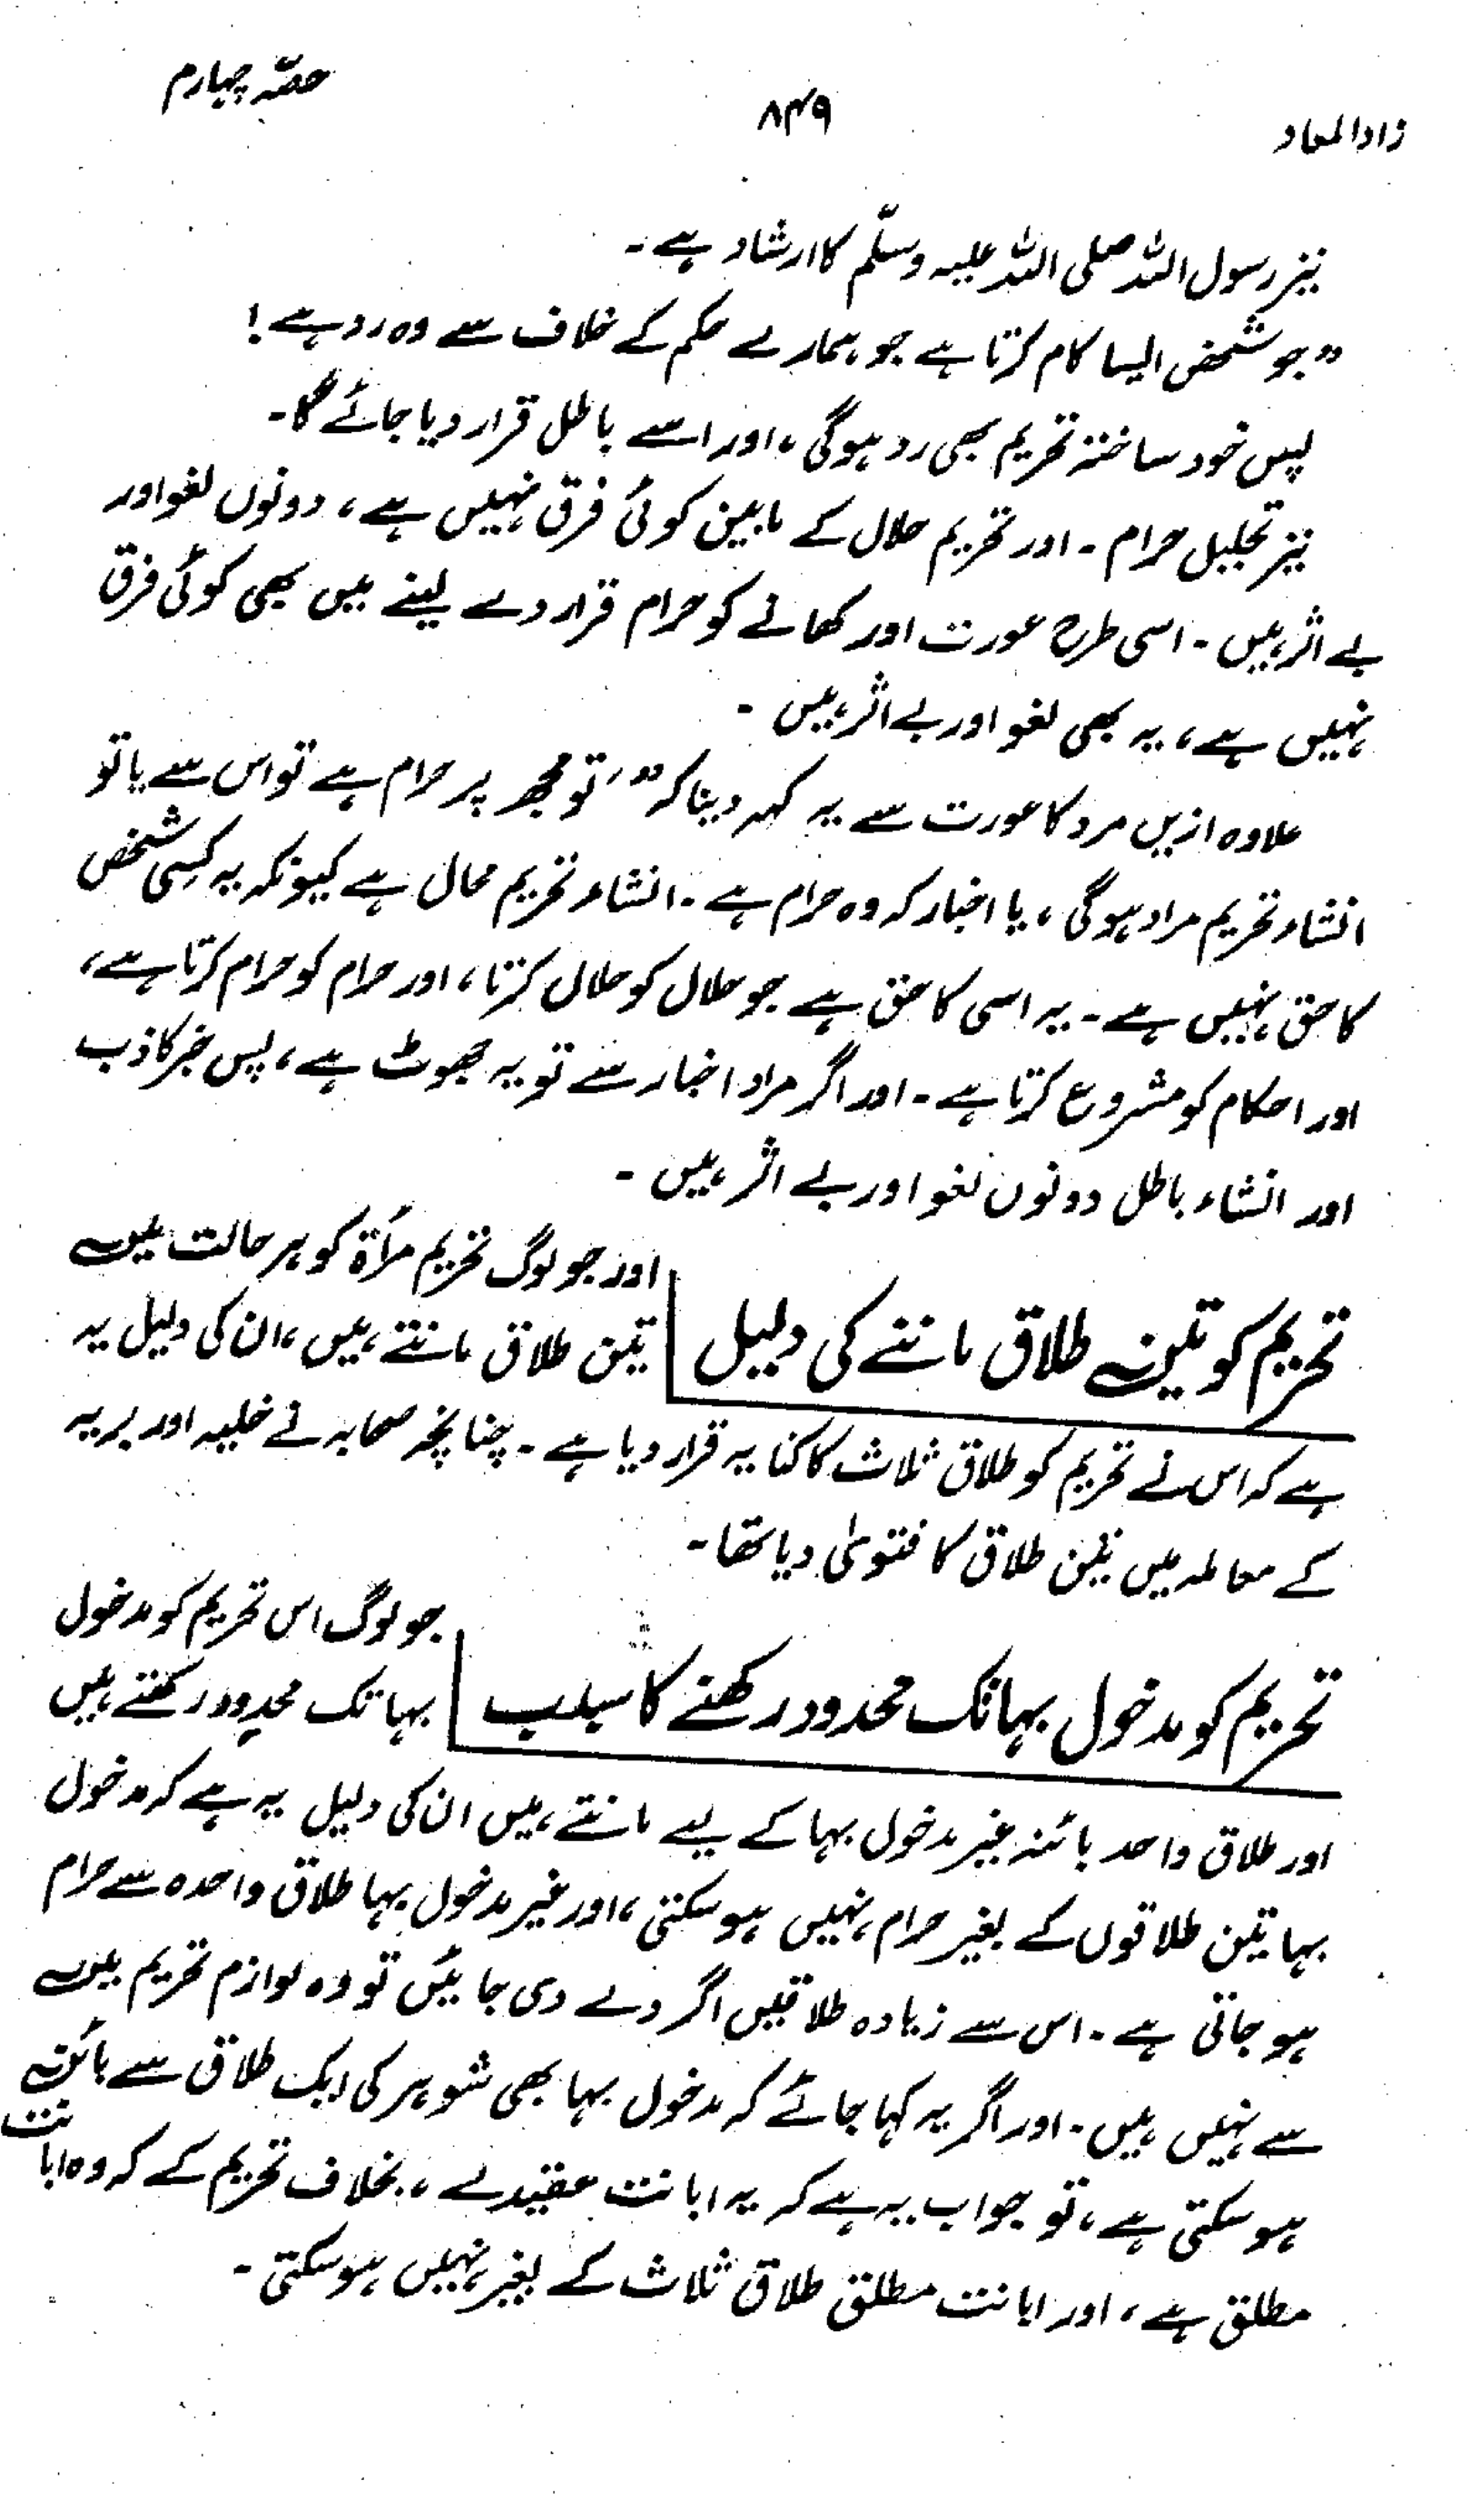 زاد المعاد
۸۴۹
حصّہ چہارم
نیز رسول اللہ صلی اللہ علیہ وسلّم کا ارشاد ہے۔
"جو شخص ایسا کام کرتا ہے جو ہمارے حکم کے خلاف سے وہ رد ہے!
پس خود ساختہ تحریم بھی رد ہوگی، اور اسے باطل قرار دیا جائے گا۔
نیز تحلیل حرام۔ اور تحریم حلال کے مابین کوئی فرق نہیں ہے، دونوں لغو اور
بے اثر ہیں۔ اسی طرح عورت اور کھانے کو حرام قرار دے لینے میں بھی کوئی فرق
نہیں ہے، یہ بھی لغو اور بے اثر ہیں۔
علاوہ ازیں مرد کا عورت سے یہ کہہ دینا کہ "تو مجھ پر حرام ہے تو اس سے یا تو
انشاء تحریم مراد ہوگی، یا اخبار کہ وہ حرام ہے۔ انشاء تحریم محال ہے کیونکہ یہ کسی شخص
کا حق نہیں ہے۔ یہ اسی کا حق ہے جو حلال کو حلال کرتا، اور حرام کو حرام کرتا ہے،
اور احکام کو مشروع کرتا ہے۔ اور اگر مراد اخبار سے تو یہ جھوٹ ہے، پس خبر کاذب
اور انشاء باطل دونوں لغو اور بے اثر ہیں۔
تحریم کو تین طلاق ماننے کی دلیل
اور جو لوگ تحریم مرأۃ کو ہر حالت میں
تین طلاق مانتے ہیں، ان کی دلیل یہ
ہے کہ اس نے تحریم کو طلاق ثلاث کا کنایہ قرار دیا ہے۔ چنانچہ صحابہ نے خلیہ اور بریہ
کے معاملہ میں تین طلاق کا فتویٰ دیا تھا۔
تحریم کو مدخول بہا تک محدود رکھنے کا سبب
جو لوگ اس تحریم کو مدخول
بہا تک محدود رکھتے ہیں
اور طلاق واحد بائنہ غیر مدخول بہا کے لیے مانتے ہیں ان کی دلیل یہ ہے کہ مدخول
بہا تین طلاقوں کے بغیر حرام نہیں ہو سکتی، اور غیر مدخول بہا طلاق واحدہ سے حرام
ہو جاتی ہے۔ اس سے زیادہ طلاقیں اگر دے دی جائیں تو وہ لوازم تحریم میں
سے نہیں ہیں۔ اور اگر یہ کہا جائے کہ مدخول بہا بھی شوہر کی ایک طلاق سے بائنہ
ہو سکتی ہے، تو جواب یہ ہے کہ یہ ابانت مقید ہے، بخلاف تحریم کے کہ وہ ابانت
مطلق ہے، اور ابانت مطلق طلاق ثلاث کے بغیر نہیں ہو سکتی۔